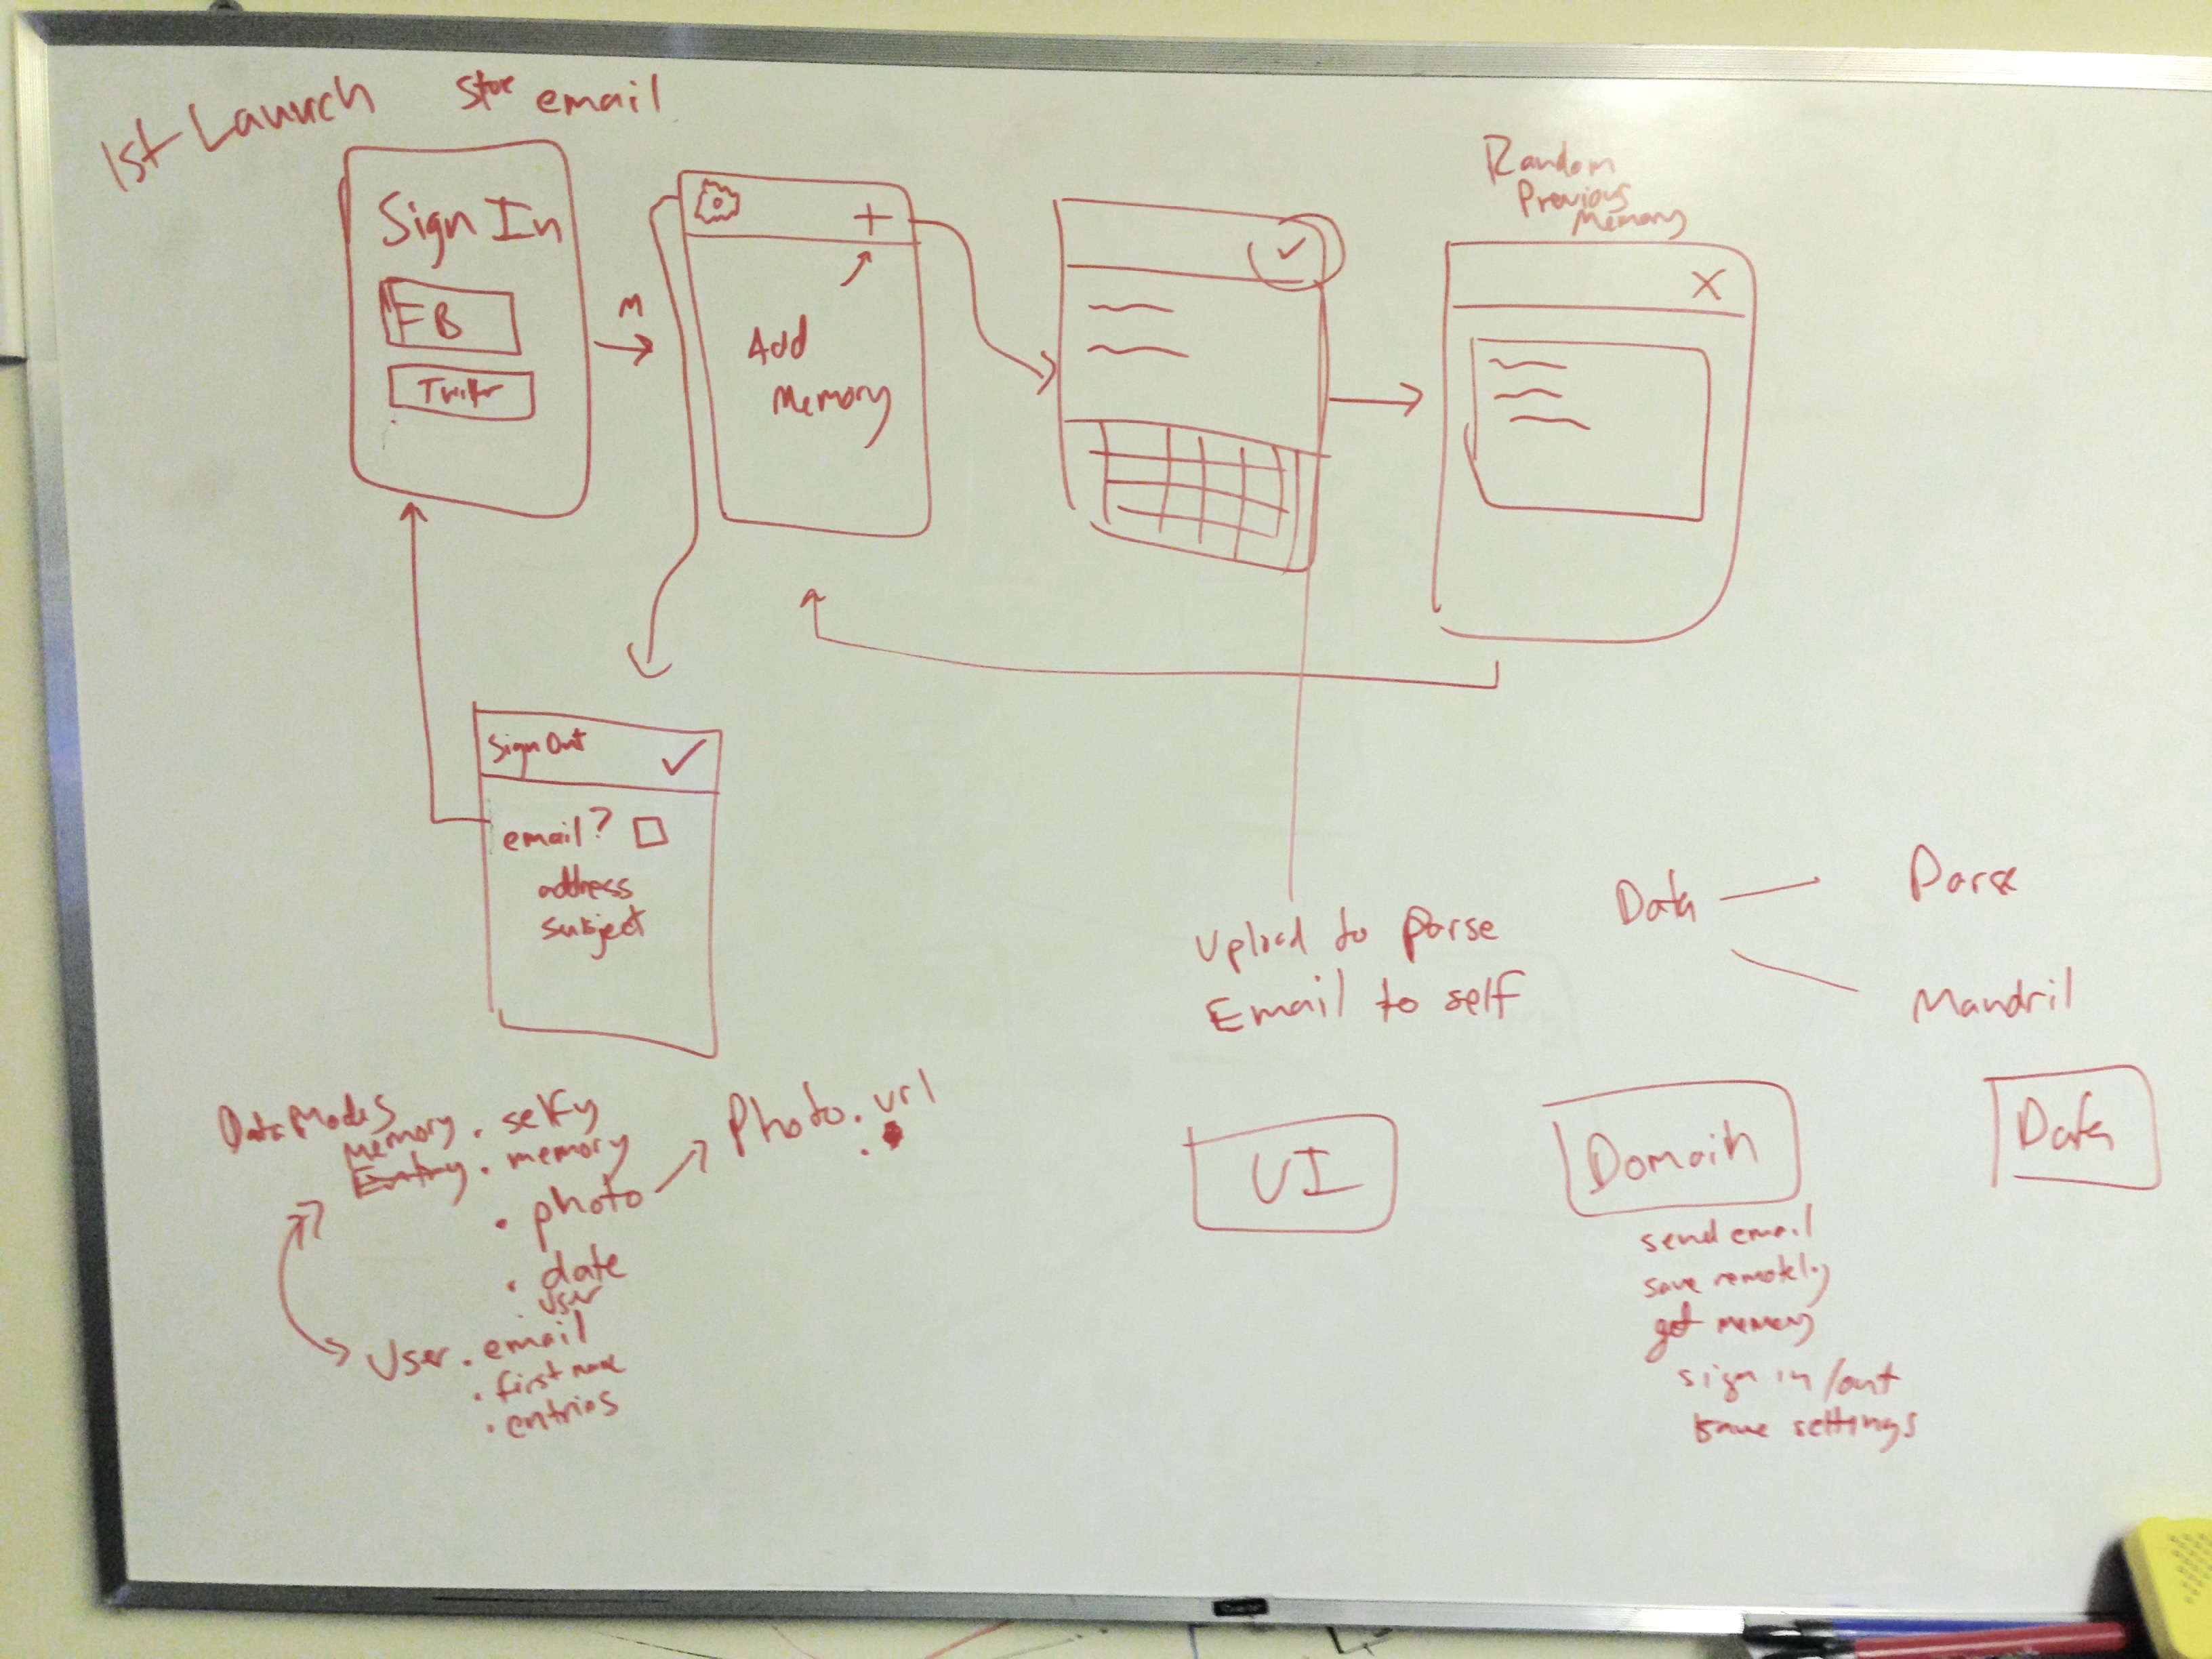 1st Launch
Store email
Sign In
FB
Twitter
M
+
Add
Memory
Random
Previous
Memory
X
Sign Out
email?
address
subject
Upload to parse
Email to self
Data
Parse
Mandril
Data Models
Memory . selfy
Entry . memory
. photo
. date
. user
Photo . url
.
User . email
. first name
. entries
UI
Domain
send email
save remotely
get memory
sign in/out
save settings
Data